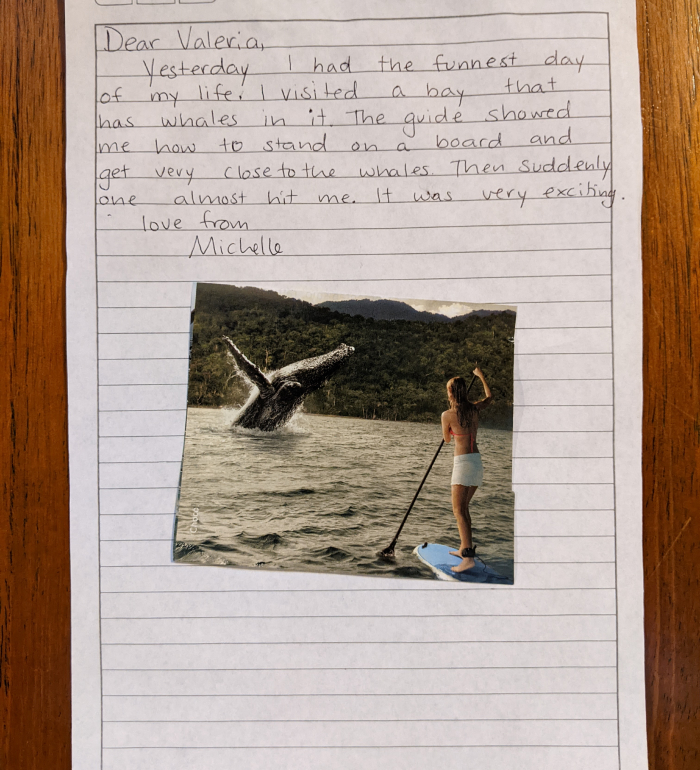 Dear Valeria,
Yesterday I had the funnest day
of my life. I visited a bay that
has whales in it. The guide showed
me how to stand on a board and
get very close to the whales. Then suddenly
one almost hit me. It was very exciting.
love from
Michelle